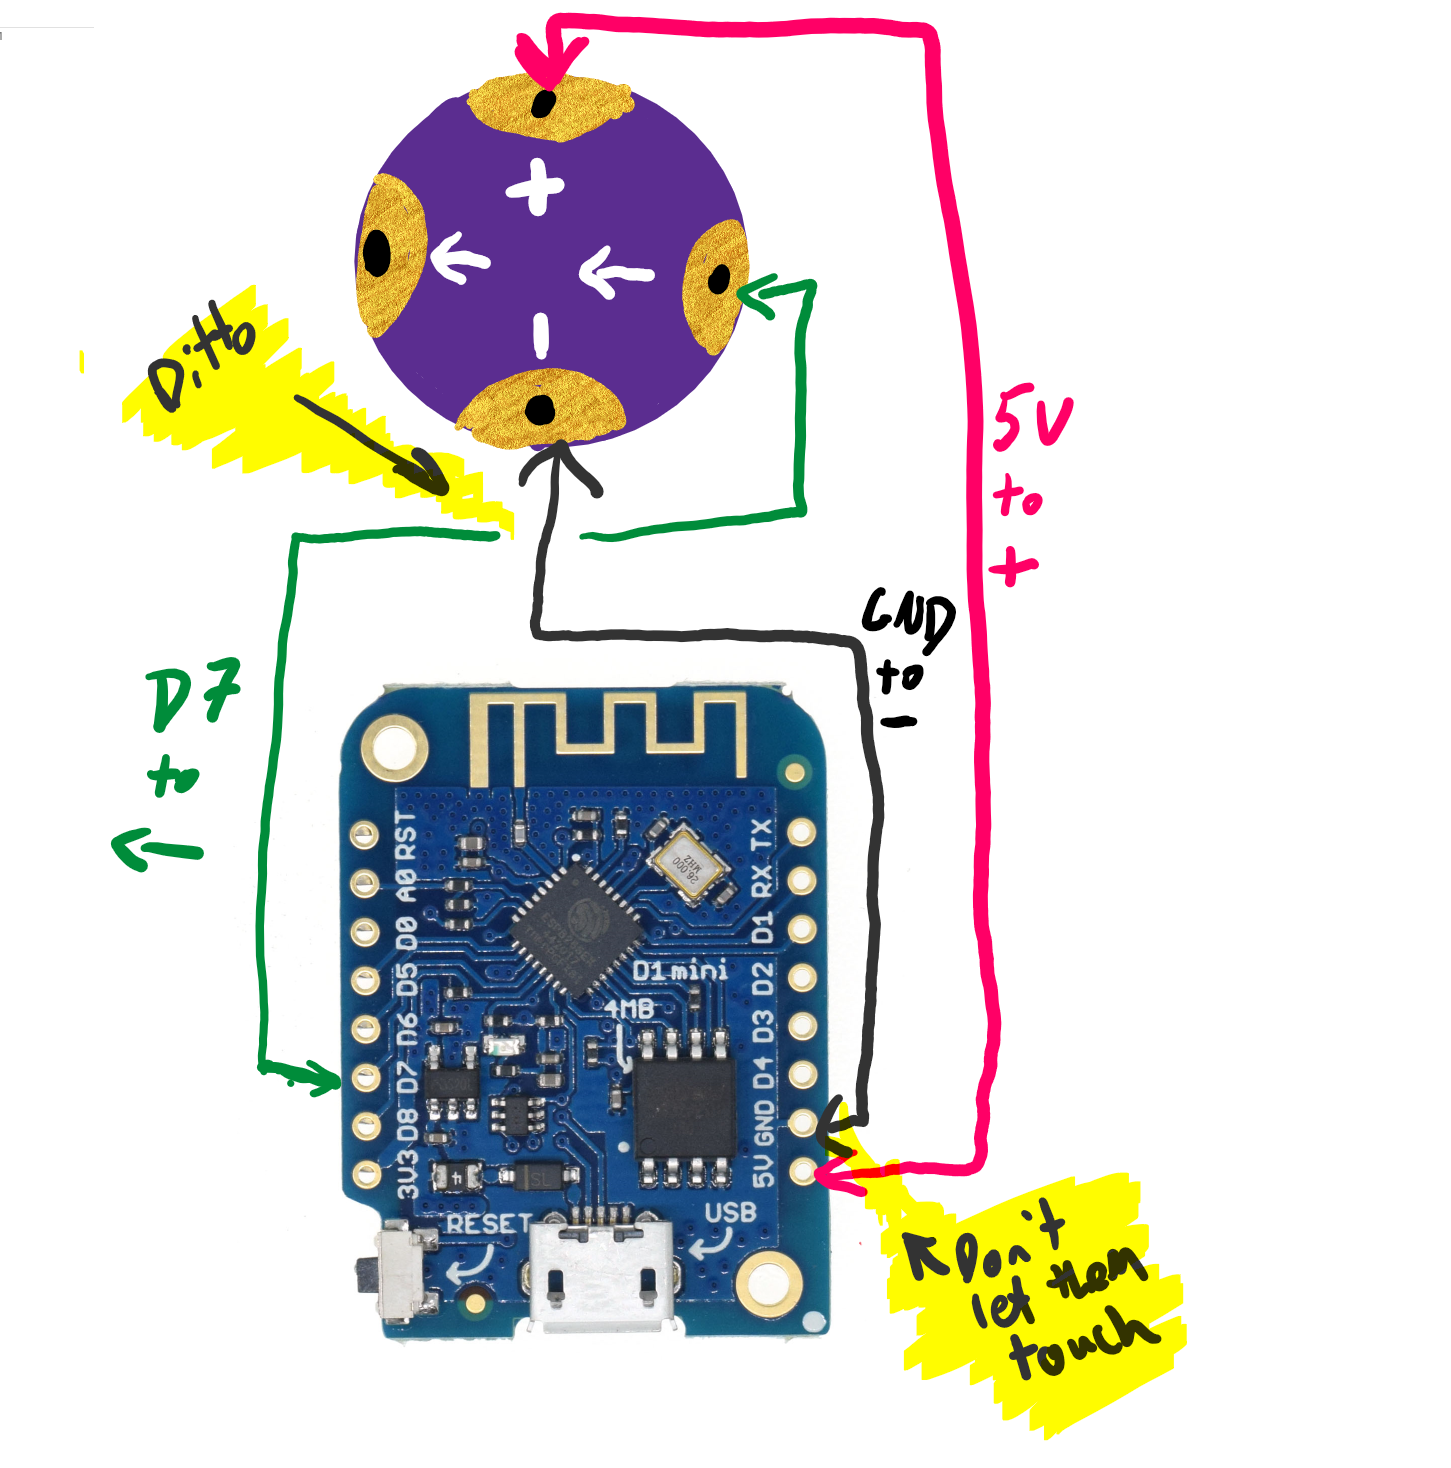 +
←
←
−
Ditto
5V
to
+
GND
to
−
D7
to
←
RST
A0
D0
D5
D6
D7
D8
3V3
TX
RX
D1
D2
D3
D4
GND
5V
26.000
MHZ
D1 mini
4MB
4
SL
RESET
USB
Don't
let them
touch